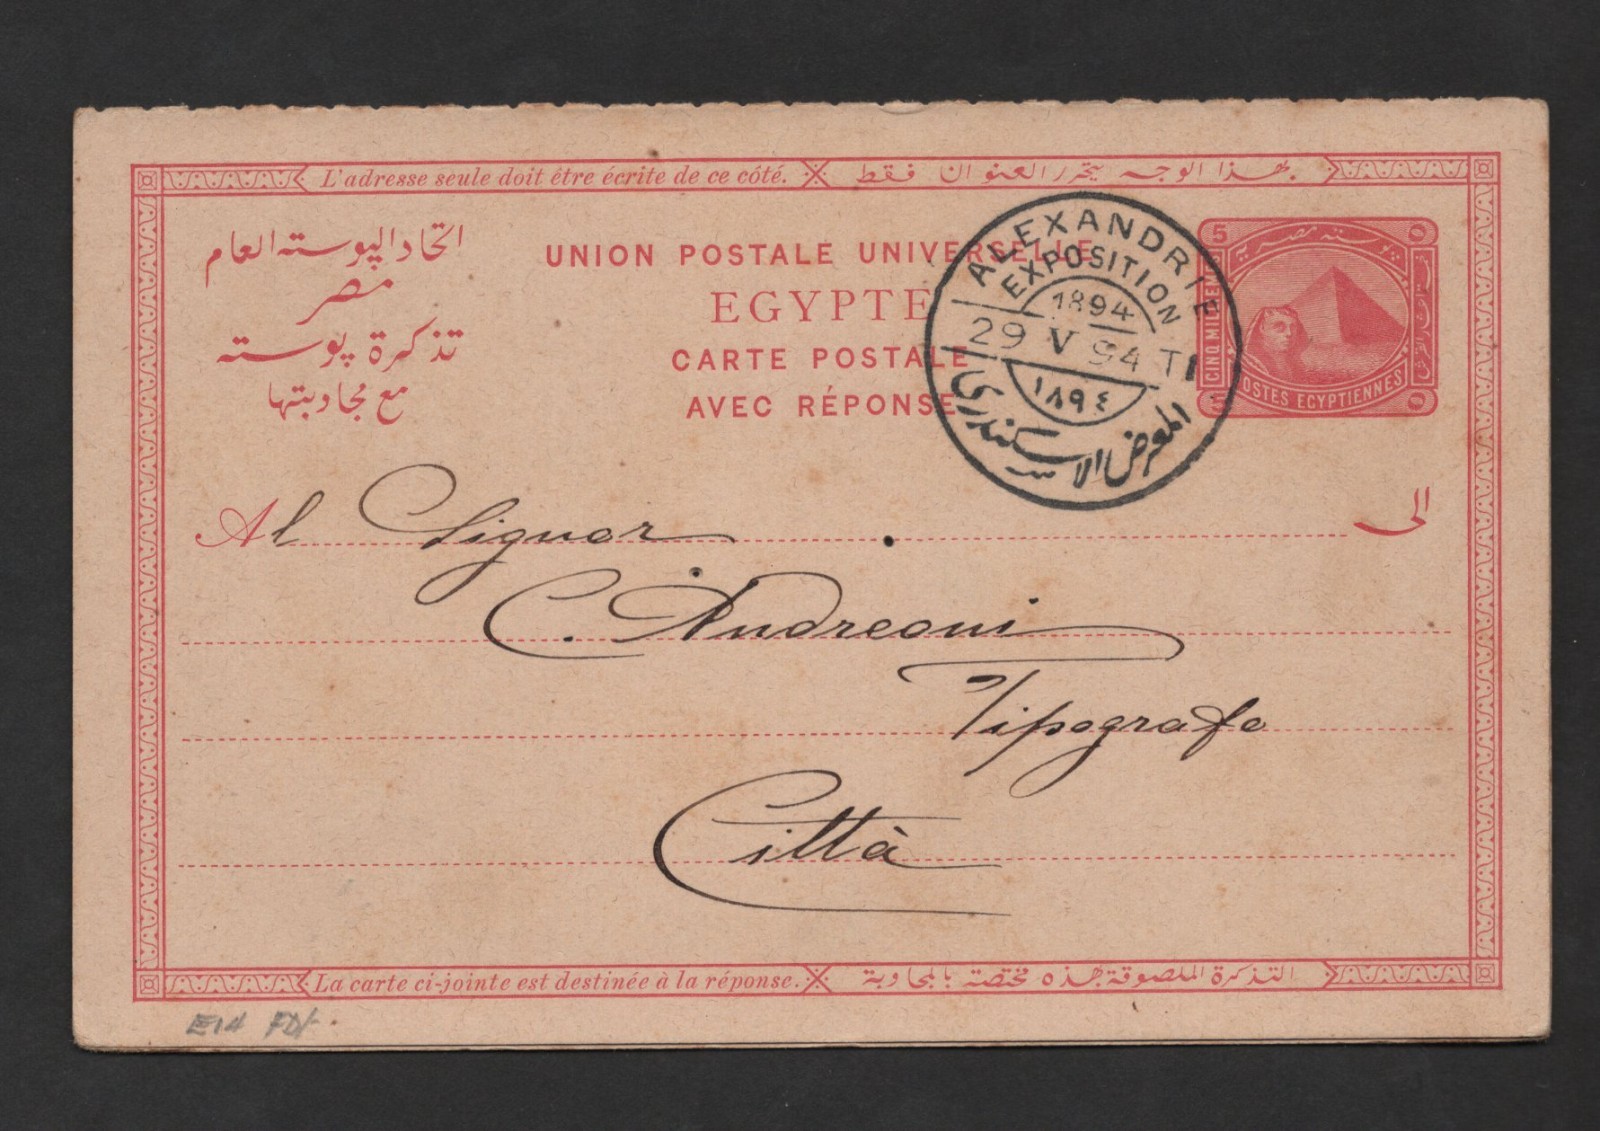 L'adresse seule doit être écrite de ce côté. بهذا الوجه يتحرر العنوان فقط
اتحاد البوسته العام
مصر
تذكرة بوسته
مع مجاوبتها
UNION POSTALE UNIVERSELLE
EGYPTE
CARTE POSTALE
AVEC RÉPONSE
ALEXANDRIE
EXPOSITION
1894
29 V 94 T1
١٨٩٤
المعرض الاسكندرى
5
بوسته مصريه
CINQ MILLIEMES
POSTES EGYPTIENNES
5
Al Signor الى
C. Andreoni
Tipografo
Città
La carte ci-jointe est destinée à la réponse. التذكرة الملصوقة بهذه مختصة بالمجاوبة
E14 FD/-.